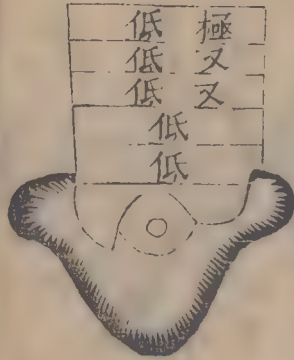 極低
又低
又低
低
低